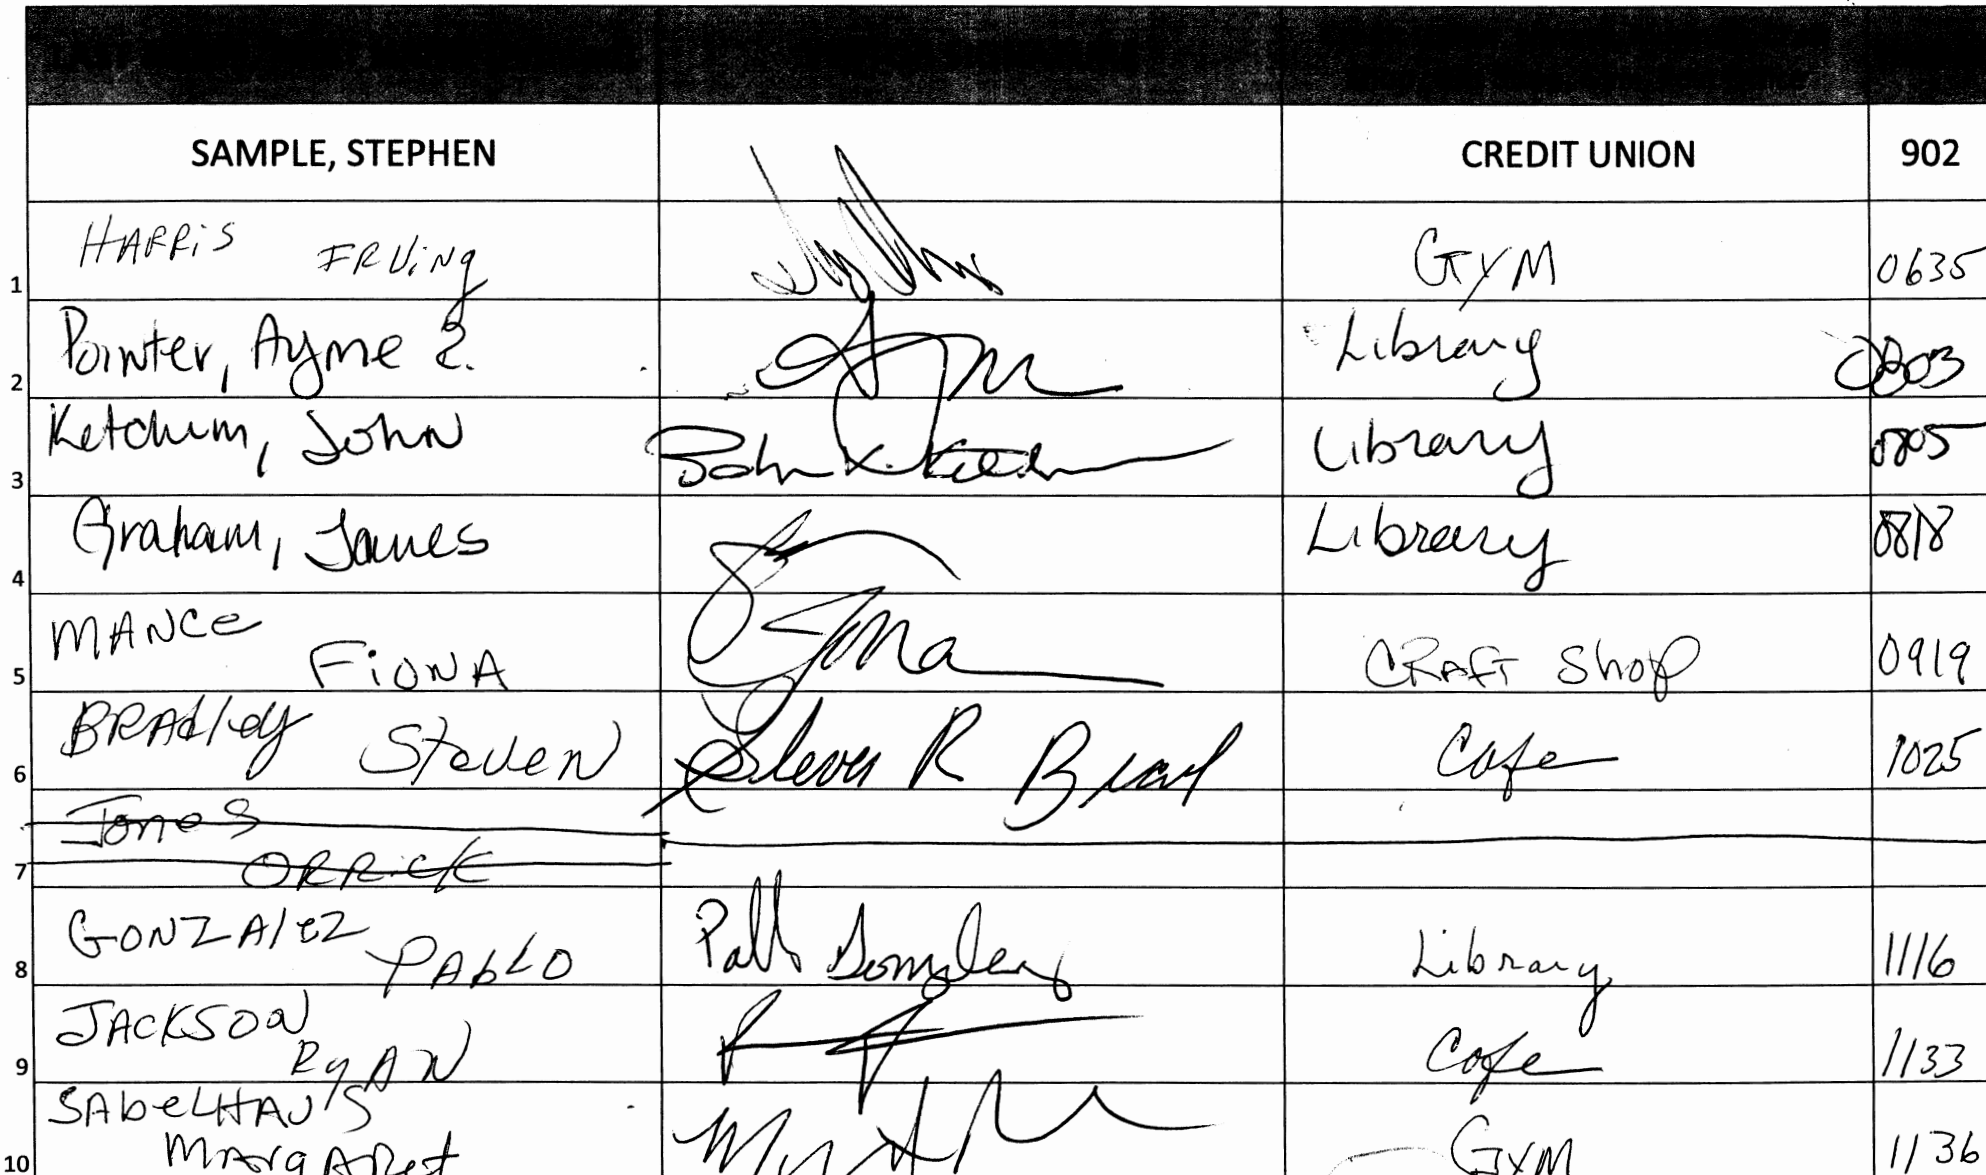 SAMPLE, STEPHEN CREDIT UNION 902
1 HARRiS IRViNg GYM 0635
2 Pointer, Ayme Z. Library 0803
3 Ketchum, John John K. Library 0805
4 Graham, James Library 0818
5 MANCe FiONA Fiona CRAFT Shop 0919
6 BRAdley Steven Steven R Cafe 1025
7 Jones ORRiCK
8 GONZAlEZ PAbLO Pablo Gonzalez Library 1116
9 JACKSON RyAN Cafe 1133
10 SAbeLHAUS MArgARet GYM 1136